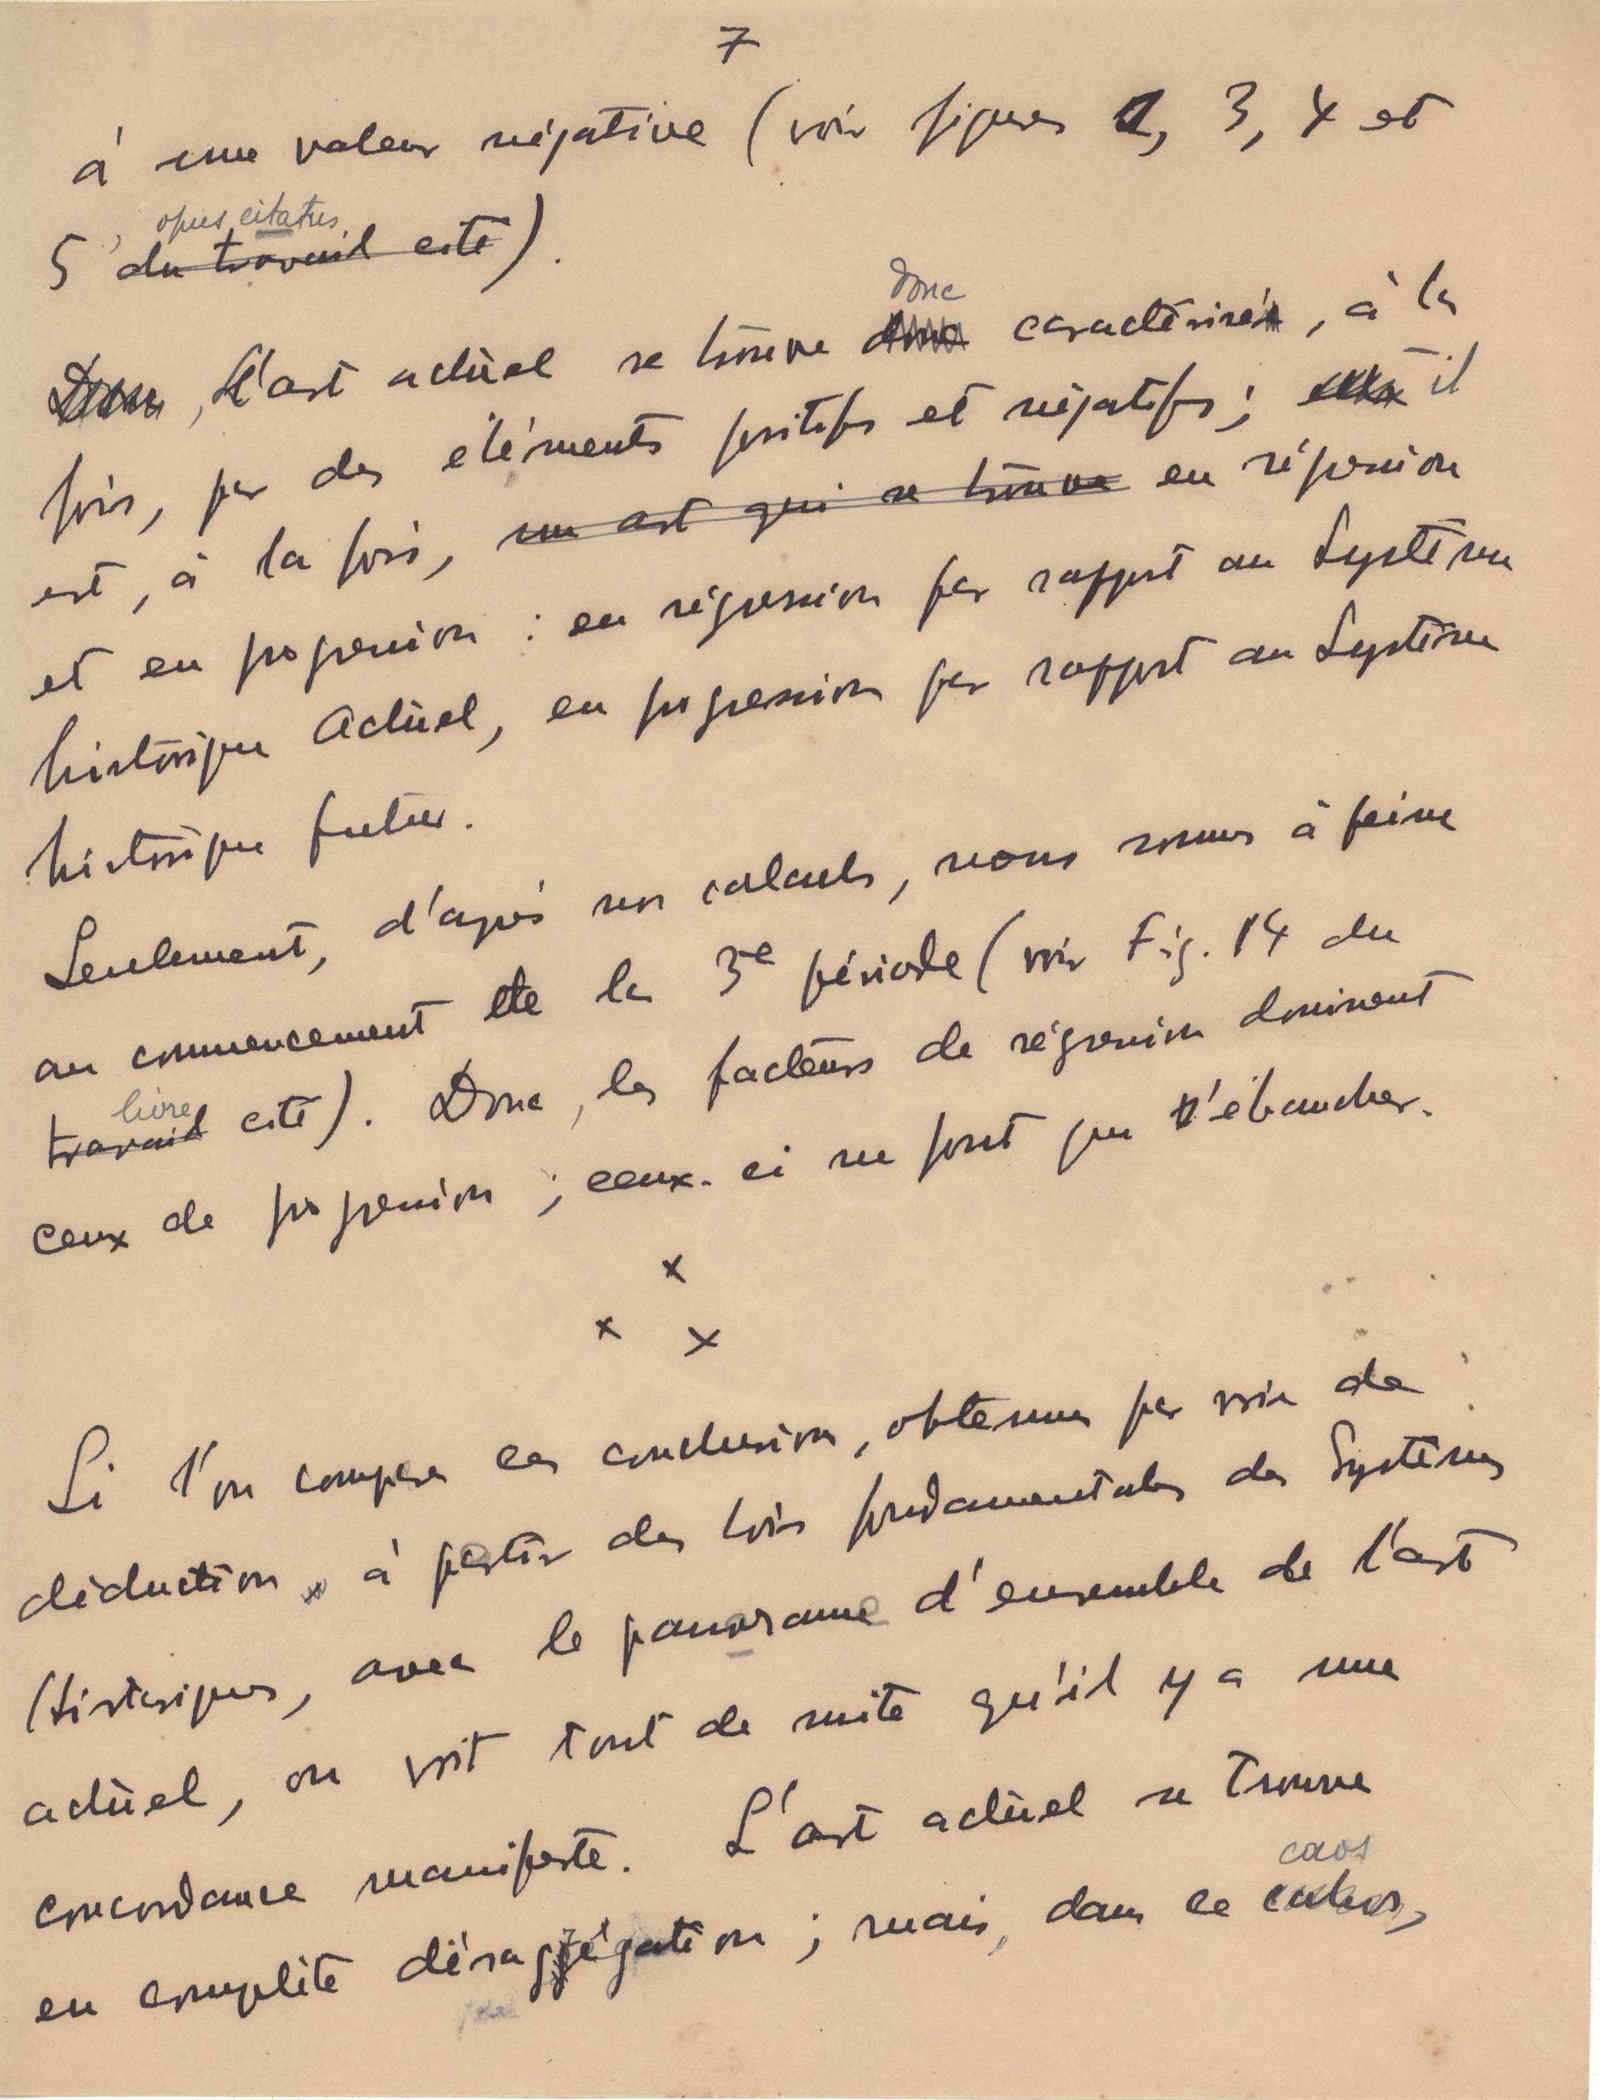 7
à une valeur négative (voir figures 2, 3, 4 et
opus citatus
5, du travail cité).
donc
Donc, L'art actuel se trouve donc caractérisé, à la
fois, par des éléments positifs et négatifs; il
est, à la fois, un art qui se trouve en régression
et en progression : en régression par rapport au Système
historique Actuel, en progression par rapport au Système
historique futur.
Seulement, d'après nos calculs, nous somes à peine
au commencement de la 3e période (voir Fig. 14 du
livre
travail cité). Donc, les facteurs de régression dominent
ceux de progression; ceux-ci ne font que s'ébaucher.
x
x x
Si l'on compare ces conclusions, obtenues par voie de
déduction, à partir des lois fondamentales des Systèmes
Historiques, avec le panorame d'ensemble de l'art
actuel, on voit tout de suite qu'il y a une
concordance manifeste. L'art actuel se trouve
caos
en complète désagrégation; mais, dans ce cahos,